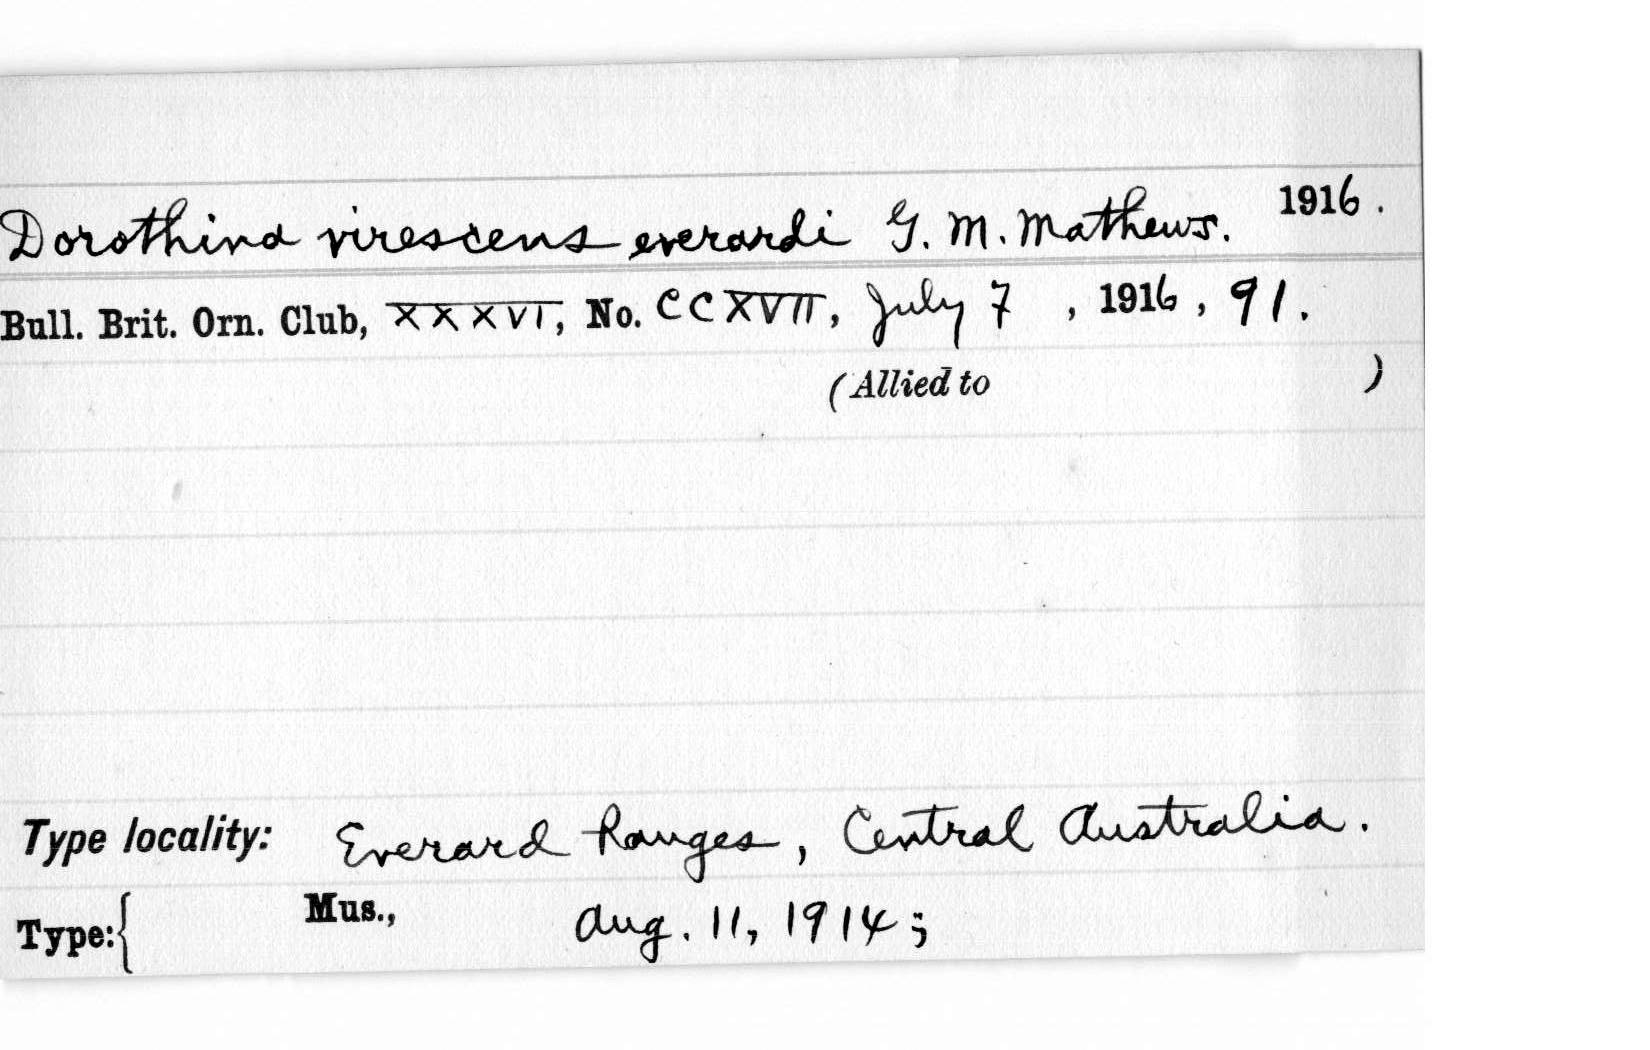 Dorothina virescens everardi G. M. Mathews. 1916.
Bull. Brit. Orn. Club, XXXVI, No. CCXVII, July 7 , 1916, 91.
(Allied to )
Type locality: Everard Ranges, Central Australia.
Type:{ Mus., Aug. 11, 1914;